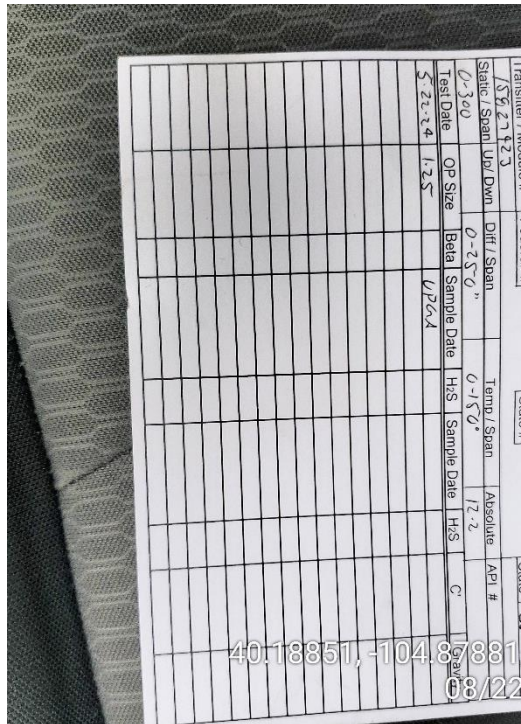 15827423
Static / Span Up/ Dwn Diff / Span Temp / Span Absolute API #
0-300 0-250" 0-150° 12.2
Test Date OP Size Beta Sample Date H2S Sample Date H2S C' Gravi
5-22-24 1.25
40.18851, -104.87881
08/22